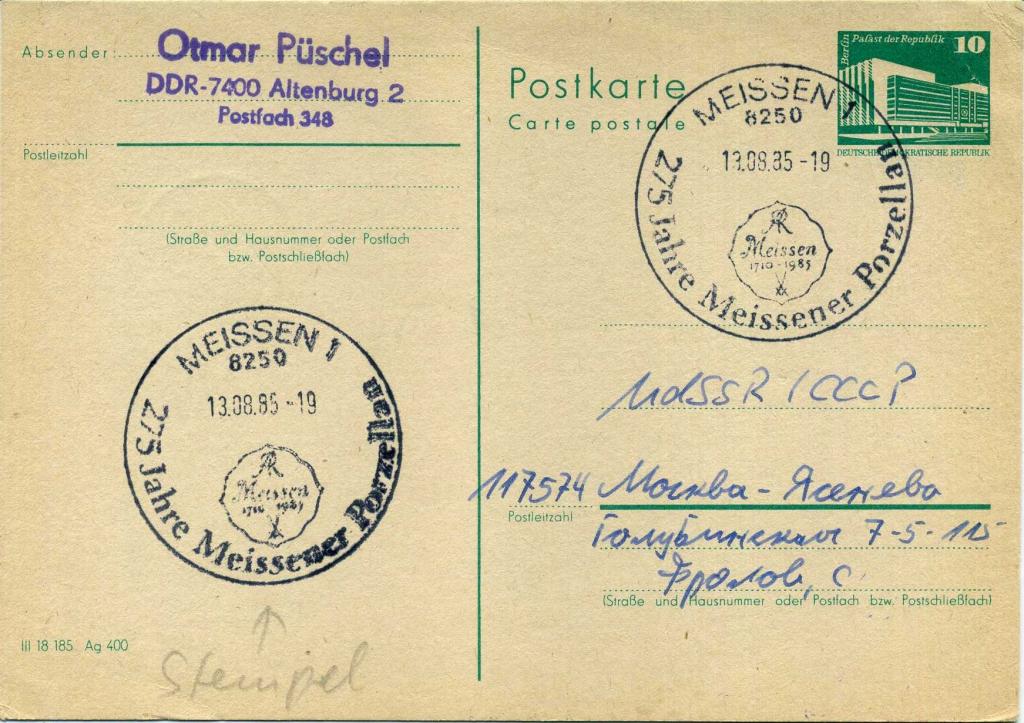 Absender: Otmar Püschel
DDR-7400 Altenburg 2
Postfach 348
Postleitzahl
(Straße und Hausnummer oder Postfach
bzw. Postschließfach)
Postkarte
Carte postale
Berlin
Palast der Republik 10
DEUTSCHE DEMOKRATISCHE REPUBLIK
MEISSEN 1
8250
13.08.85-19
AR
Meissen
1710-1985
275 Jahre Meissener Porzellan
MEISSEN 1
8250
13.08.85-19
AR
Meissen
1710 1985
275 Jahre Meissener Porzellan
UdSSR / CCCP
117574 Москва - Ясенево
Postleitzahl
Голубинская 7-5-115
Фролов, С.
(Straße und Hausnummer oder Postfach bzw. Postschließfach)
III 18 185 Ag 400
Stempel